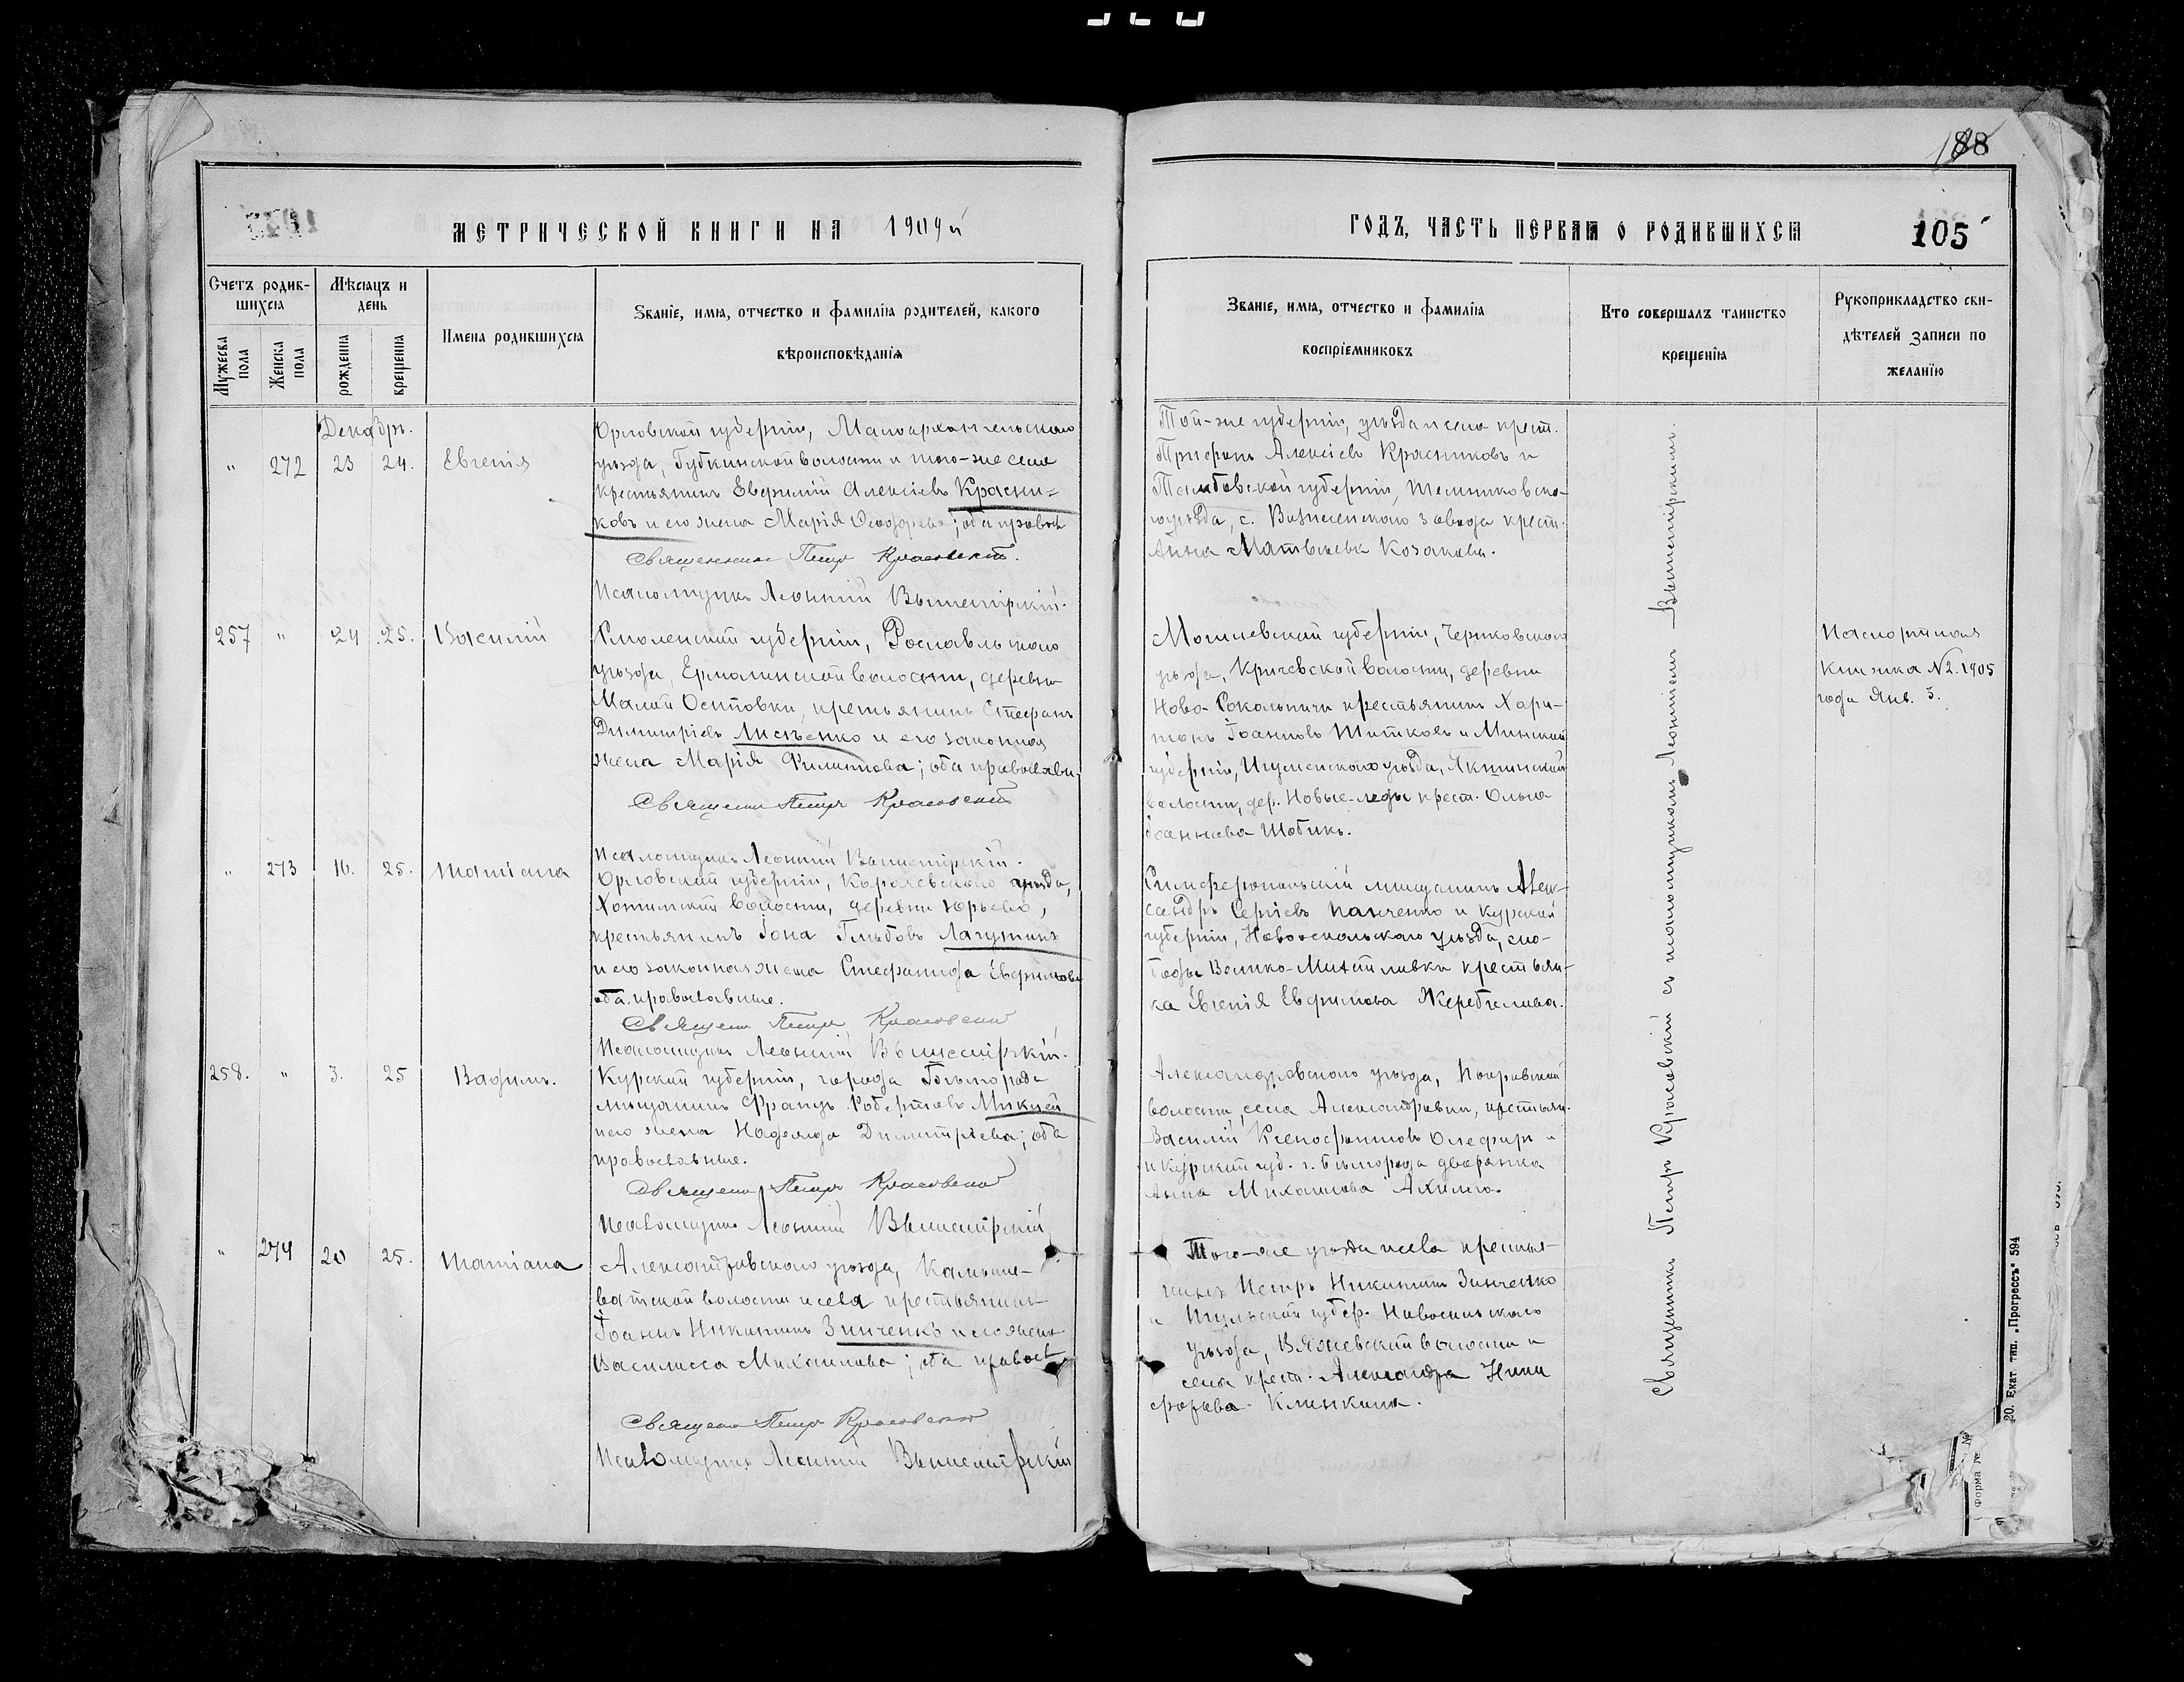 188
МЕТРИЧЕСКОЙ КНИГИ НА 1909й
ГОДЪ, ЧАСТЬ ПЕРВАЯ О РОДИВШИХСЯ
105
Счетъ родив-
шихся
Мужеска пола
Женска пола
Мѣсяцъ и
день
рожденія
крещенія
Имена родившихся
Званіе, имя, отчество и фамилія родителей, какого
вѣроисповѣданія
Званіе, имя, отчество и фамилія
воспріемниковъ
Кто совершалъ таинство
крещенія
Рукоприкладство сви-
дѣтелей записи по
желанію
Декабрь.
" 272 23 24. Евгенія
Орловской губерніи, Малоархангельскаго
уѣзда, Губкинской волости и того-же села
крестьянинъ Евфимій Алексіевъ Красни-
ковъ и его жена Марія Ѳеодорова; оба правосл.
Священникъ Петръ Красовскій.
Псаломщикъ Леонтій Вышемірскій.
Той-же губерніи, уѣзда и села крест.
Трифонъ Алексіевъ Красниковъ и
Тамбовской губерніи, Темниковска-
го уѣзда, с. Вознесенскаго завода крест.
Анна Матвѣева Козакова.
257 " 24 25. Василій
Смоленской губерніи, Рославльскаго
уѣзда, Ермолинской волости, деревни
Малой Осиповки, крестьянинъ Стефанъ
Димитріевъ Лисѣенко и его законная
жена Марія Филиппова; оба православн.
Священн. Петръ Красовскій
Псаломщикъ Леонтій Вышемірскій.
Могилевской губерніи, Чериковскаго
уѣзда, Кричевской волости, деревни
Ново-Сокольничи крестьянинъ Хари-
тонъ Іоанновъ Титковъ и Минской
губерніи, Игуменскаго уѣзда, Якшинской
волости, дер. Новые-ляды крест. Ольга
Іоаннова Шобикъ.
Паспортная
Книжка №2. 1905
года Янв. 3.
" 273 16. 25. Татіана
Орловской губерніи, Карачевскаго уѣзда,
Хотимской волости, деревни Юрьево,
крестьянинъ Іона Глѣбовъ Лагутинъ
и его законная жена Стефанида Евфимова
оба православные.
Священ. Петръ Красовскій
Псаломщикъ Леонтій Вышемірскій.
Симферопольскій мѣщанинъ Алек-
сандръ Сергіевъ Панченко и Курской
губерніи, Новооскольскаго уѣзда, сло-
боды Велико-Михайловки крестьян-
ка Евгенія Евфимова Жеребилова.
258. " 3. 25 Вадимъ.
Курской губерніи, города Бѣлгорода
мѣщанинъ Францъ Робертовъ Микшъ
и его жена Надежда Димитріева; оба
православные.
Священ. Петръ Красовскій
Псаломщикъ Леонтій Вышемірскій
Александровскаго уѣзда, Покровской
волости, села Александровки, крестьян.
Василій Ксенофонтовъ Олефиръ и
и Курской губ. г. Бѣлгорода дворянка
Анна Михаилова Ахилго.
" 274 20 25. Татіана
Александровскаго уѣзда, Камыше-
ватской волости и села крестьянинъ
Іоаннъ Никитинъ Зинченко и его жена
Василисса Михаилова; оба правосл.
Священ. Петръ Красовскій
Псаломщикъ Леонтій Вышемірскій
Того-же уѣзда и села крестья-
нинъ Петръ Никитинъ Зинченко
и Тульской губер. Новосильскаго
уѣзда, Вяжевской волости и
села крест. Александра Ники
форова Кленкина.
Священникъ Петръ Красовскій съ псаломщикомъ Леонтіемъ Вышемірскимъ.
20. Екат. тип. „Прогрессъ“ 594
Форма №